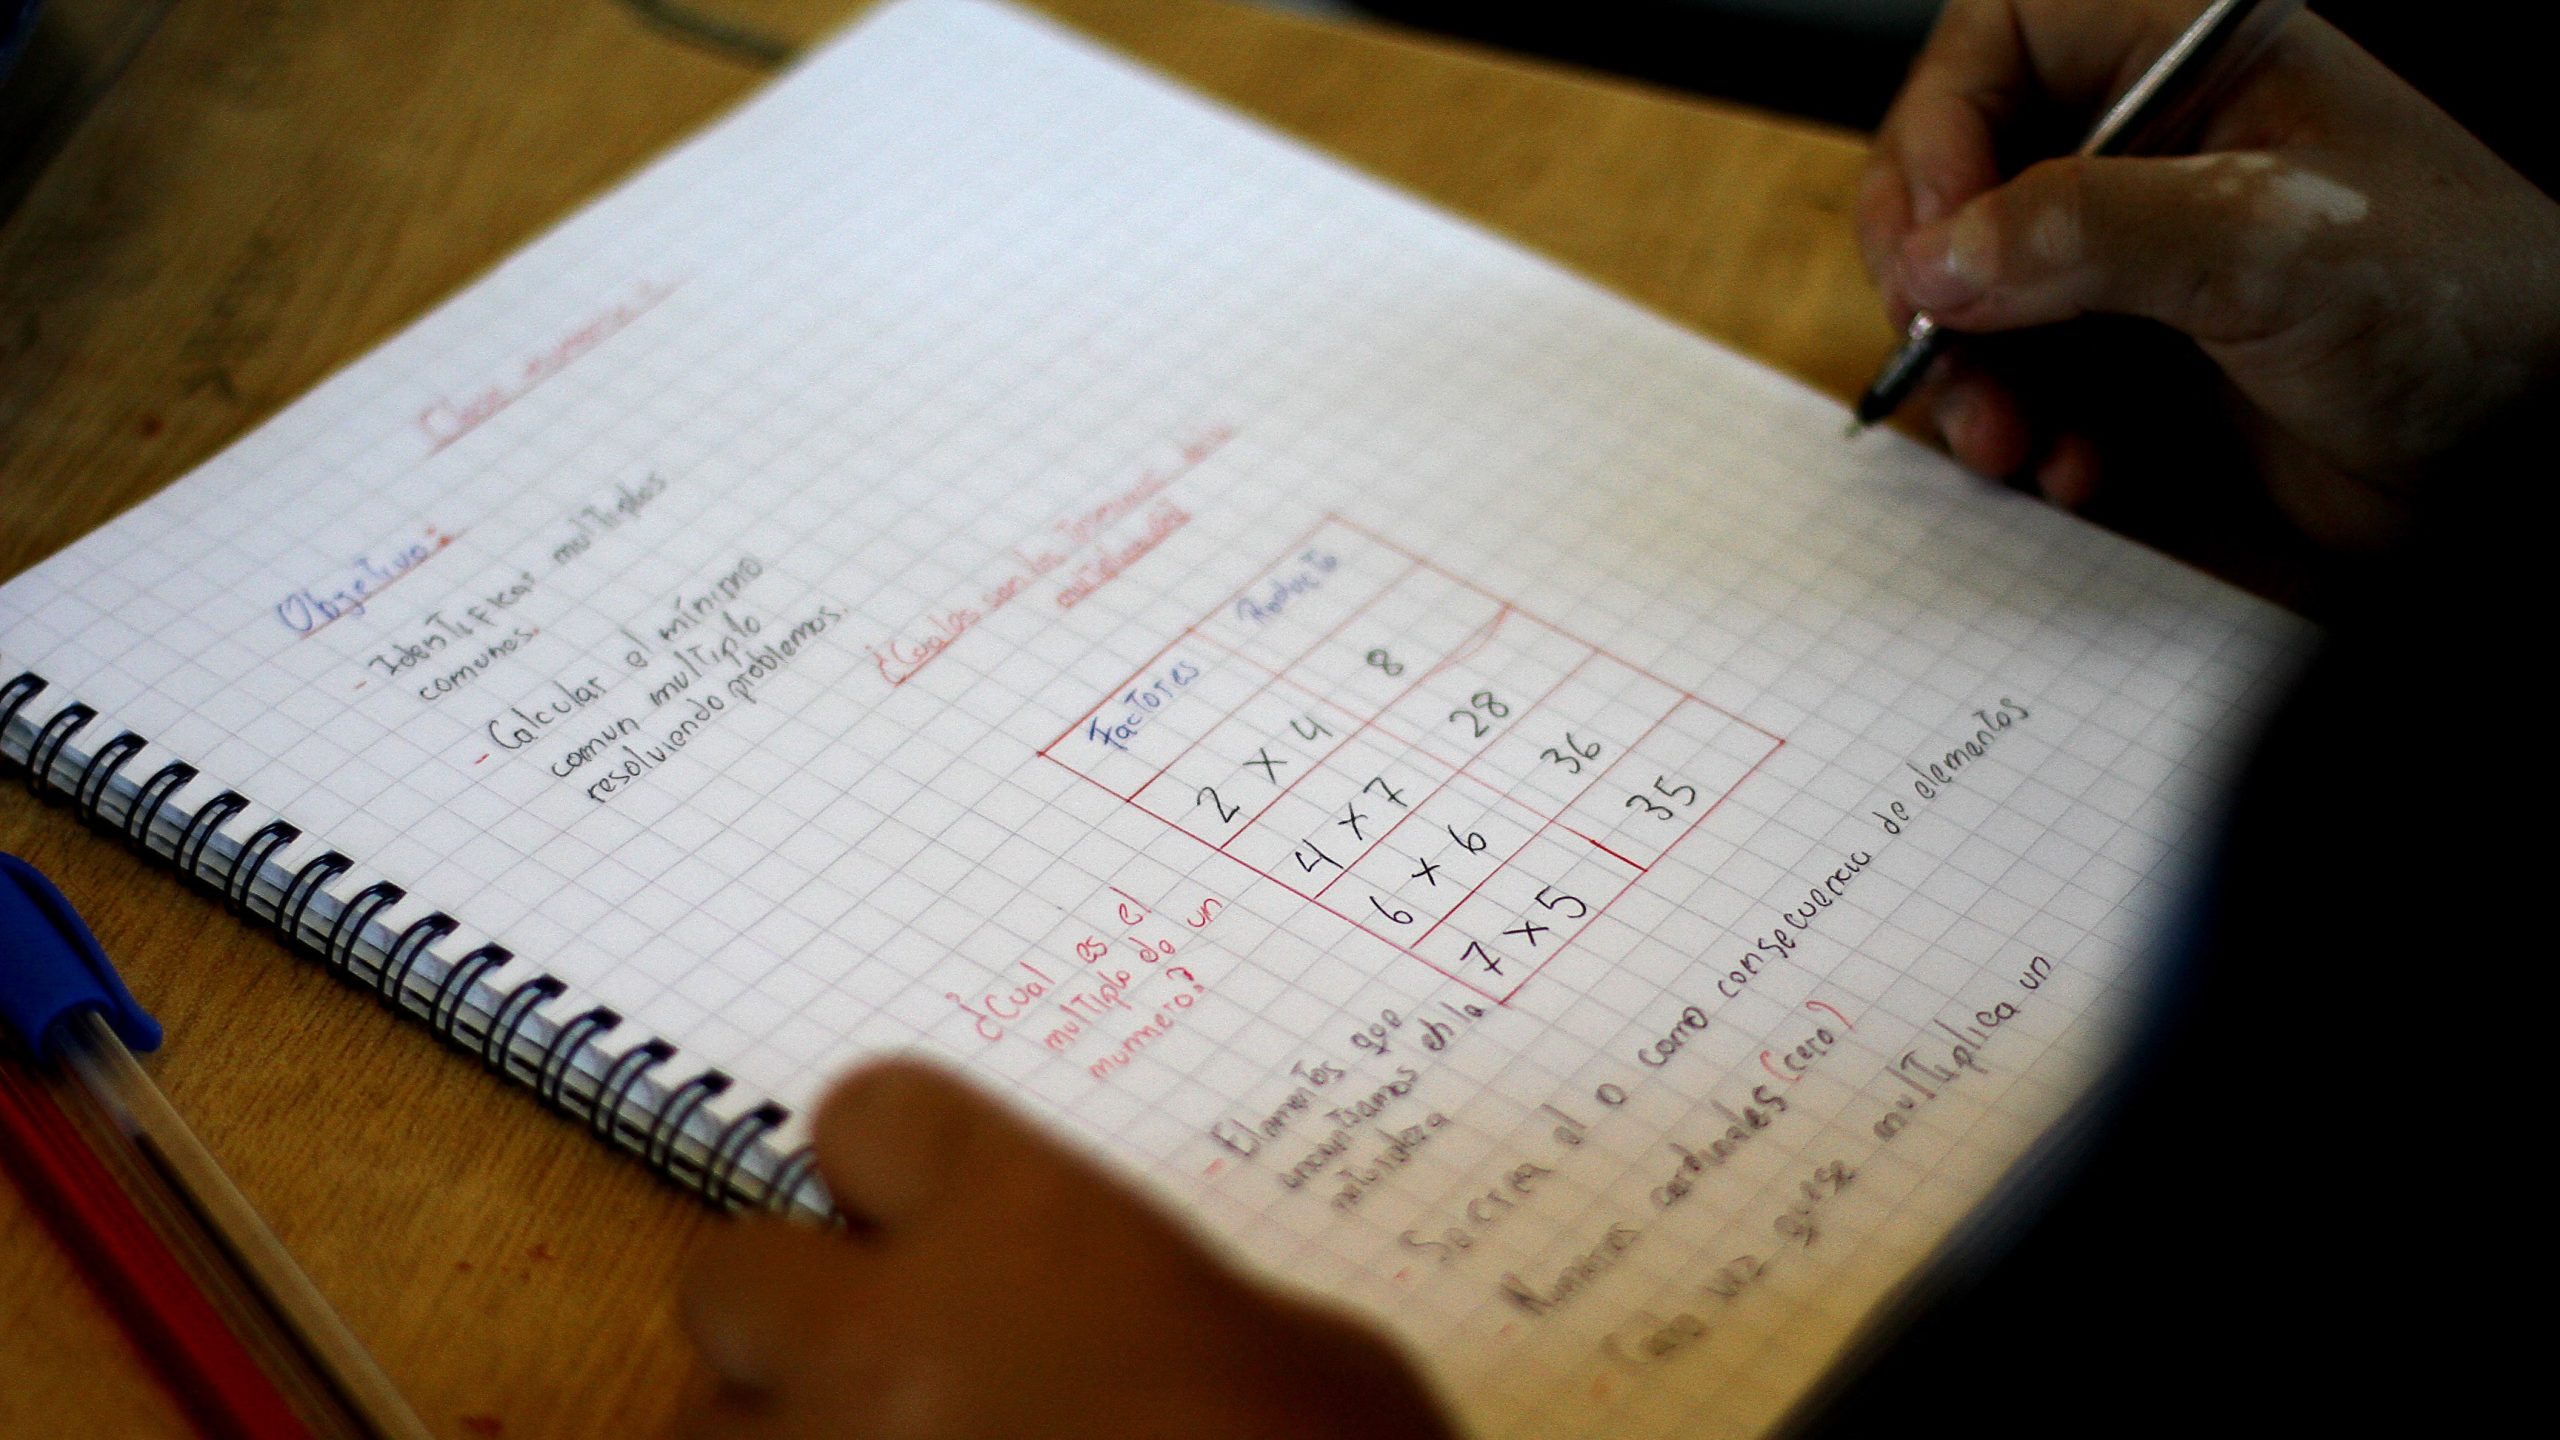 Clase numero
Objetivo:
- Identificar multiplos
comunes.
- Calcular el mínimo
comun multiplo
resolviendo problemas.
¿Cuales son los
Factores Producto
2 x 4 8
4 x 7 28
6 x 6 36
7 x 5 35
¿Cual es el
multiplo de un
numero?
- Elementos que
encontramos en la
naturaleza
- Se crea el 0 como consecuencia de elementos
- Numeros cardinales (cero)
Cada vez que se multiplica un